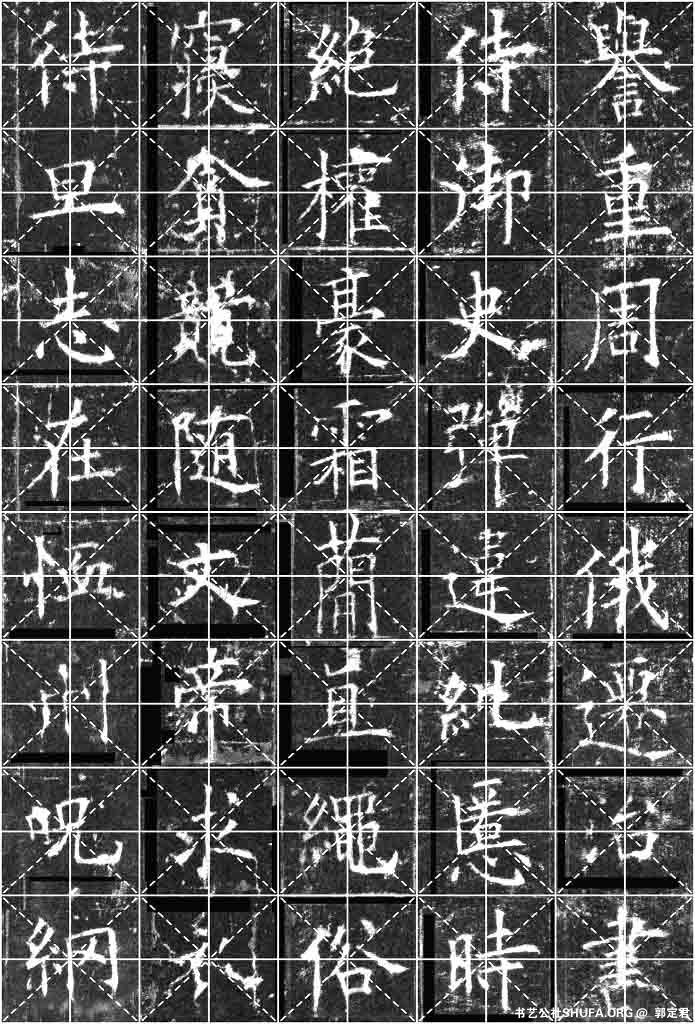 譽重周行俄遷治書
侍御史彈違糾慝時
絕權豪霜簡直繩俗
寢貪競随文帝求衣
待旦志在恤刑呪網
书艺公社SHUFA.ORG @ 郭定君